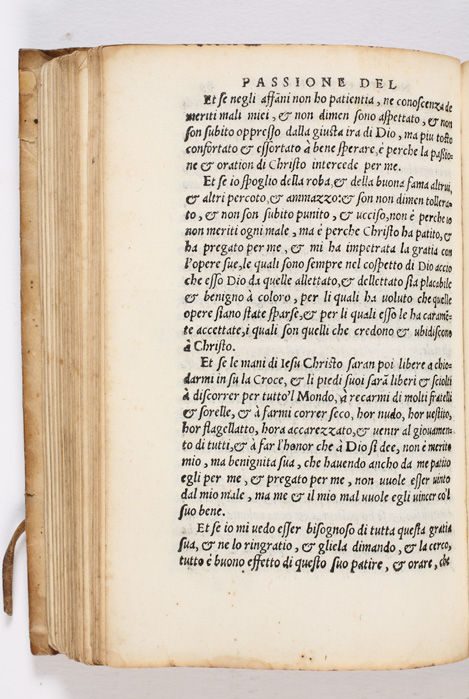 PASSIONE DEL
Et se negli affãni non ho patientia, ne conoscenza de
meriti mali miei, & non dimen sono aspettato, & non
son subito oppresso dalla giusta ira di Dio, ma piu tosto
confortato & essortato à bene sperare, è perche la passio
ne & oration di Christo intercede per me.
Et se io spoglio della roba, & della buona fama altrui,
& altri percoto, & ammazzo: & son non dimen tollera
to, & non son subito punito, & ucciso, non è perche io
non meriti ogni male, ma è perche Christo ha patito, &
ha pregato per me, & mi ha impetrata la gratia con
l'opere sue, le quali sono sempre nel cospetto di Dio accio
che esso Dio da quelle allettato, & dellettato sia placabile
& benigno à coloro, per li quali ha uoluto che quelle
opere siano state sparse, & per li quali esso le ha caramẽ
te accettate, i quali son quelli che credono & ubidiscono
à Christo.
Et se le mani di Iesu Christo saran poi libere a chio
darmi in su la Croce, & li piedi suoi sarã liberi & sciolti
à discorrer per tutto'l Mondo, à recarmi di molti fratelli
& sorelle, & à farmi correr seco, hor nudo, hor uestito,
hor flagellatto, hora accarezzato, & uenir al giouamen
to di tutti, & à far l'honor che à Dio si dee, non è merito
mio, ma benignita sua, che hauendo ancho da me patito
egli per me, & pregato per me, non uuole esser uinto
dal mio male, ma me & il mio mal uuole egli uincer co'l
suo bene.
Et se io mi uedo esser bisognoso di tutta questa gratia
sua, & ne lo ringratio, & gliela dimando, & la cerco,
tutto è buono effetto di questo suo patire, & orare, che